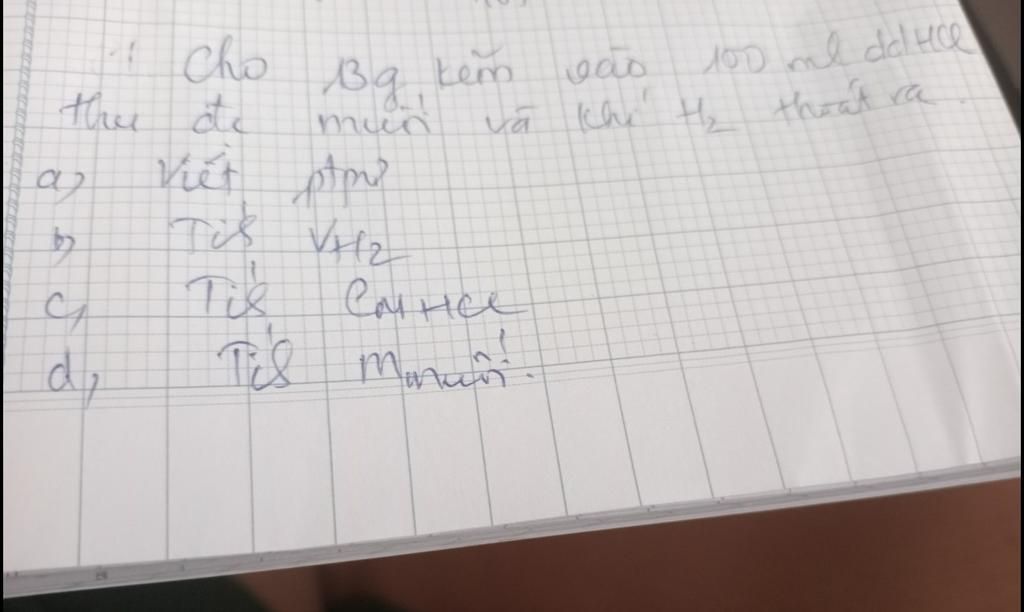 Cho 13g kẽm vào 100 ml ddHCl
thu đc muối và khí H2 thoát ra.
a, Viết ptpứ
b, Tís VH2
c, Tís CM HCl
d, Tís mmuối.